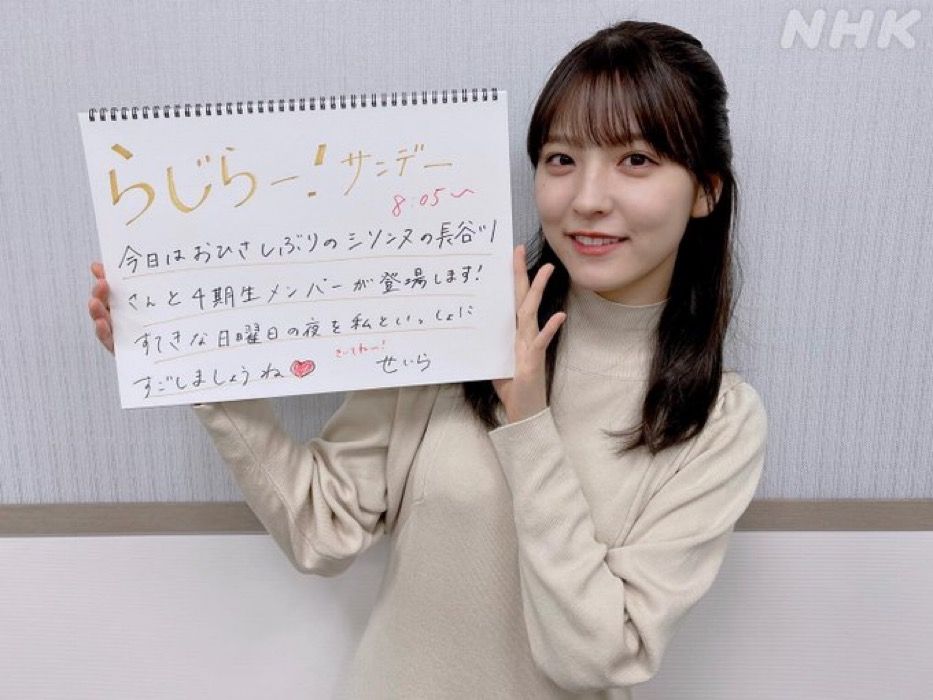 NHK
らじらー！サンデー
8:05〜
今日はおひさしぶりのシソンヌの長谷川
さんと4期生メンバーが登場します！
すてきな日曜日の夜を私といっしょに
きいてねー！
すごしましょうね♥ せいら